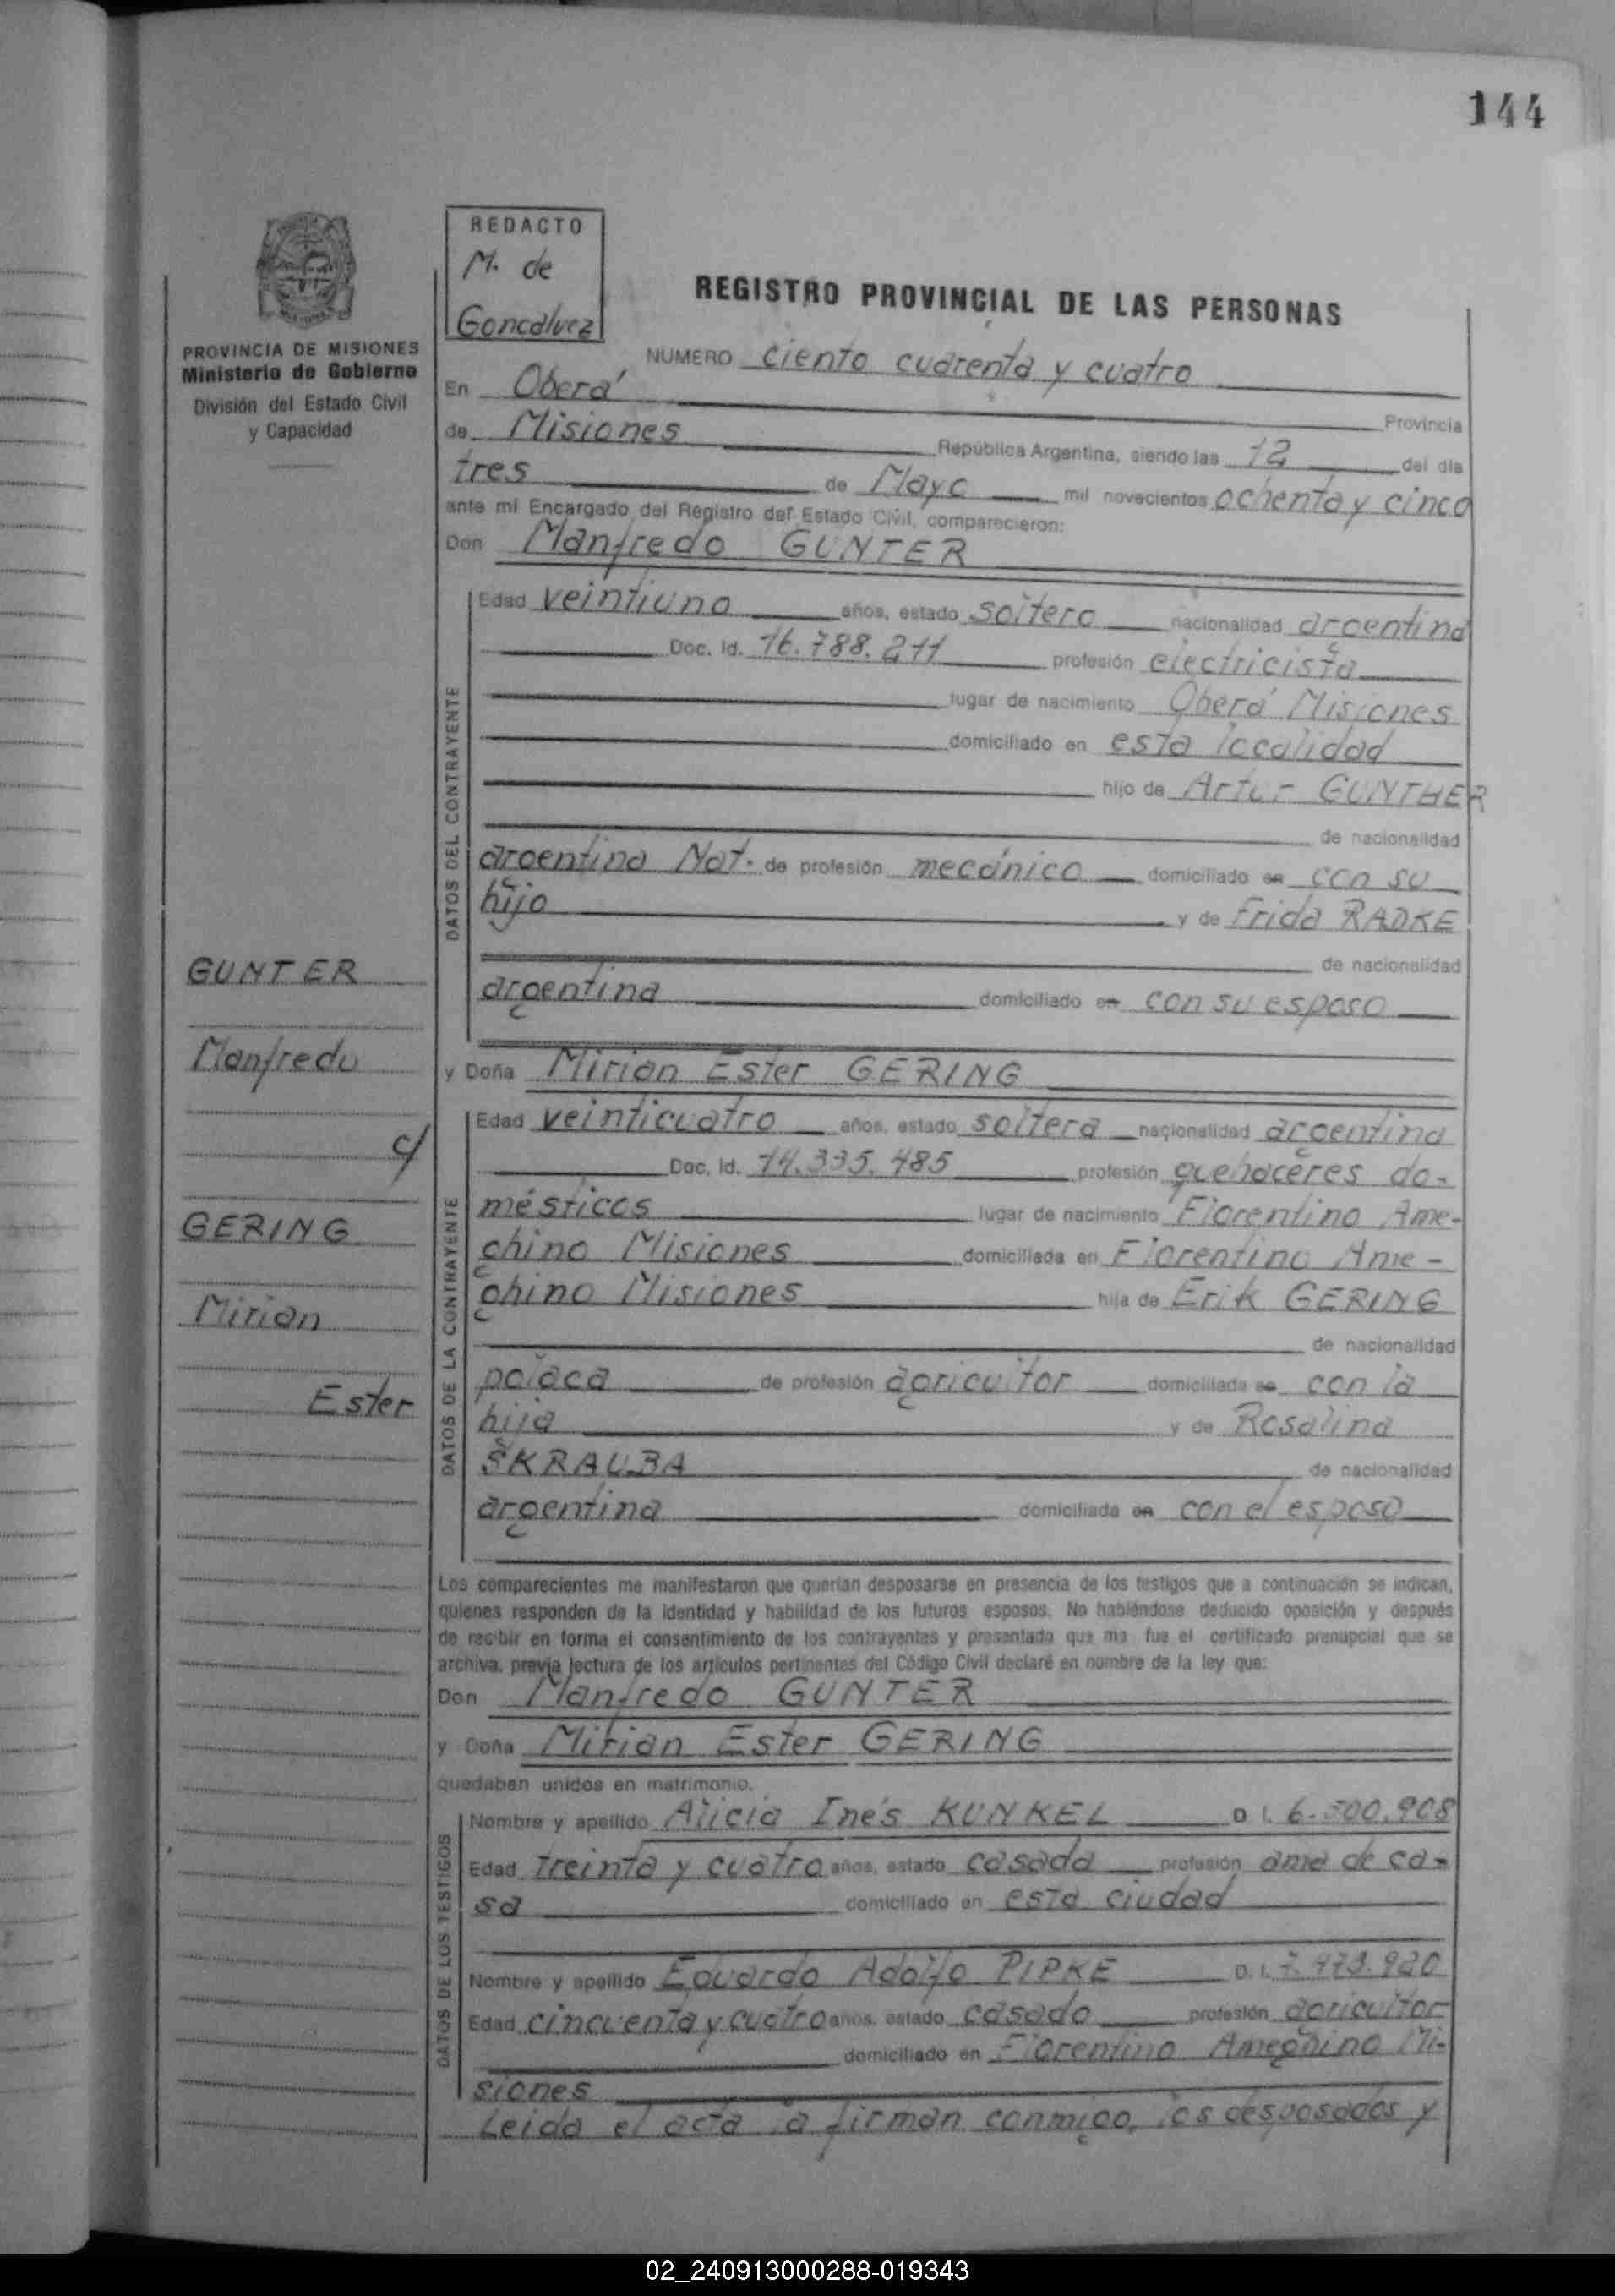 144
REDACTO
M. de
Goncalvez
PROVINCIA DE MISIONES
Ministerio de Gobierno
División del Estado Civil
y Capacidad
REGISTRO PROVINCIAL DE LAS PERSONAS
NUMERO ciento cuarenta y cuatro
En Oberá Provincia
de Misiones República Argentina, siendo las 12 del día
tres de Mayo mil novecientos ochenta y cinco
ante mí Encargado del Registro del Estado Civil, comparecieron:
Don Manfredo GUNTER
DATOS DEL CONTRAYENTE
Edad veintiuno años, estado soltero nacionalidad argentina
Doc. Id. 16.788.211 profesión electricista
lugar de nacimiento Oberá Misiones
domiciliado en esta localidad
hijo de Artur GUNTHER
de nacionalidad
argentino Nat. de profesión mecánico domiciliado en con su
hijo y de Frida RADKE
de nacionalidad
argentina domiciliado en con su esposo
y Doña Mirian Ester GERING
DATOS DE LA CONTRAYENTE
Edad veinticuatro años, estado soltera nacionalidad argentina
Doc. Id. 14.335.485 profesión quehaceres do-
mésticos lugar de nacimiento Florentino Ame-
ghino Misiones domiciliada en Florentino Ame-
ghino Misiones hija de Erik GERING
de nacionalidad
polaca de profesión agricultor domiciliada en con la
hija y de Rosalina
SKRAUBA de nacionalidad
argentina domiciliada en con el esposo
GUNTER
Manfredo
c/
GERING
Mirian
Ester
Los comparecientes me manifestaron que querían desposarse en presencia de los testigos que a continuación se indican,
quienes responden de la identidad y habilidad de los futuros esposos. No habiéndose deducido oposición y después
de recibir en forma el consentimiento de los contrayentes y presentado que me fue el certificado prenupcial que se
archiva, previa lectura de los artículos pertinentes del Código Civil declaré en nombre de la ley que:
Don Manfredo GUNTER
y Doña Mirian Ester GERING
quedaban unidos en matrimonio.
DATOS DE LOS TESTIGOS
Nombre y apellido Alicia Inés KUNKEL D. I. 6.500.908
Edad treinta y cuatro años, estado casada profesión ama de ca-
sa domiciliado en esta ciudad
Nombre y apellido Eduardo Adolfo PIPKE D. I. 7.473.920
Edad cincuenta y cuatro años, estado casado profesión agricultor
domiciliado en Florentino Ameghino Mi-
siones
Leida el acta la firman conmigo, los desposados y
02_240913000288-019343